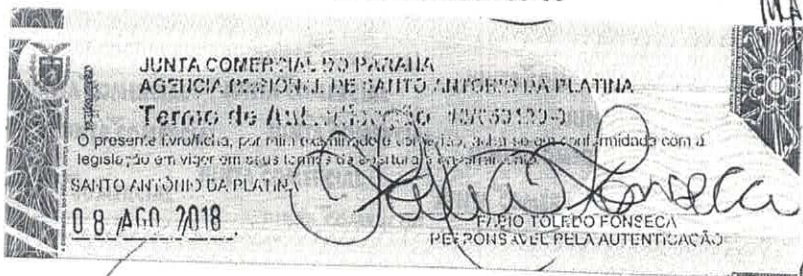 JUNTA COMERCIAL DO PARANÁ
AGENCIA REGIONAL DE SANTO ANTONIO DA PLATINA
Termo de Autenticação
O presente livro/ficha, por mim examinado e conferido, acha-se em conformidade com a
legislação em vigor em seus termos de abertura e encerramento
SANTO ANTÔNIO DA PLATINA
08 AGO 2018
FABIO TOLEDO FONSECA
RESPONSAVEL PELA AUTENTICAÇÃO